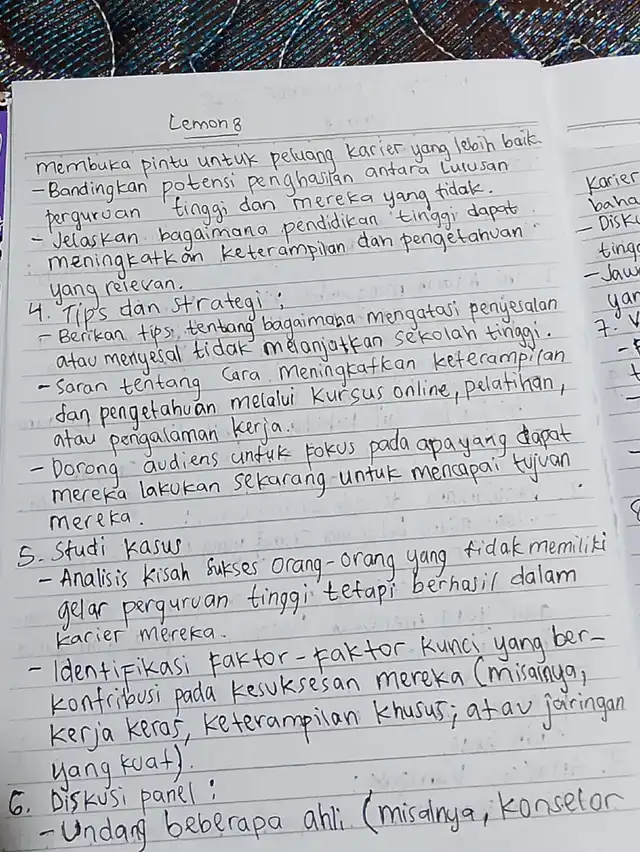 Lemon8
membuka pintu untuk peluang karier yang lebih baik
- Bandingkan potensi penghasilan antara lulusan
perguruan tinggi dan mereka yang tidak.
- Jelaskan bagaimana pendidikan tinggi dapat
meningkatkan keterampilan dan pengetahuan
yang relevan.
4. Tips dan strategi :
- Berikan tips, tentang bagaimana mengatasi penyesalan
atau menyesal tidak melanjutkan sekolah tinggi.
- Saran tentang cara meningkatkan keterampilan
dan pengetahuan melalui kursus online, pelatihan,
atau pengalaman kerja.
- Dorong audiens untuk fokus pada apa yang dapat
mereka lakukan sekarang untuk mencapai tujuan
mereka.
5. Studi kasus
- Analisis kisah sukses orang-orang yang tidak memiliki
gelar perguruan tinggi tetapi berhasil dalam
karier mereka.
- Identifikasi faktor-faktor kunci yang ber-
kontribusi pada kesuksesan mereka (misalnya,
kerja keras, keterampilan khusus; atau jaringan
yang kuat).
6. Diskusi panel :
- Undang beberapa ahli (misalnya, konselor
karier
- Disk
ting
- Jaw
yan
7.